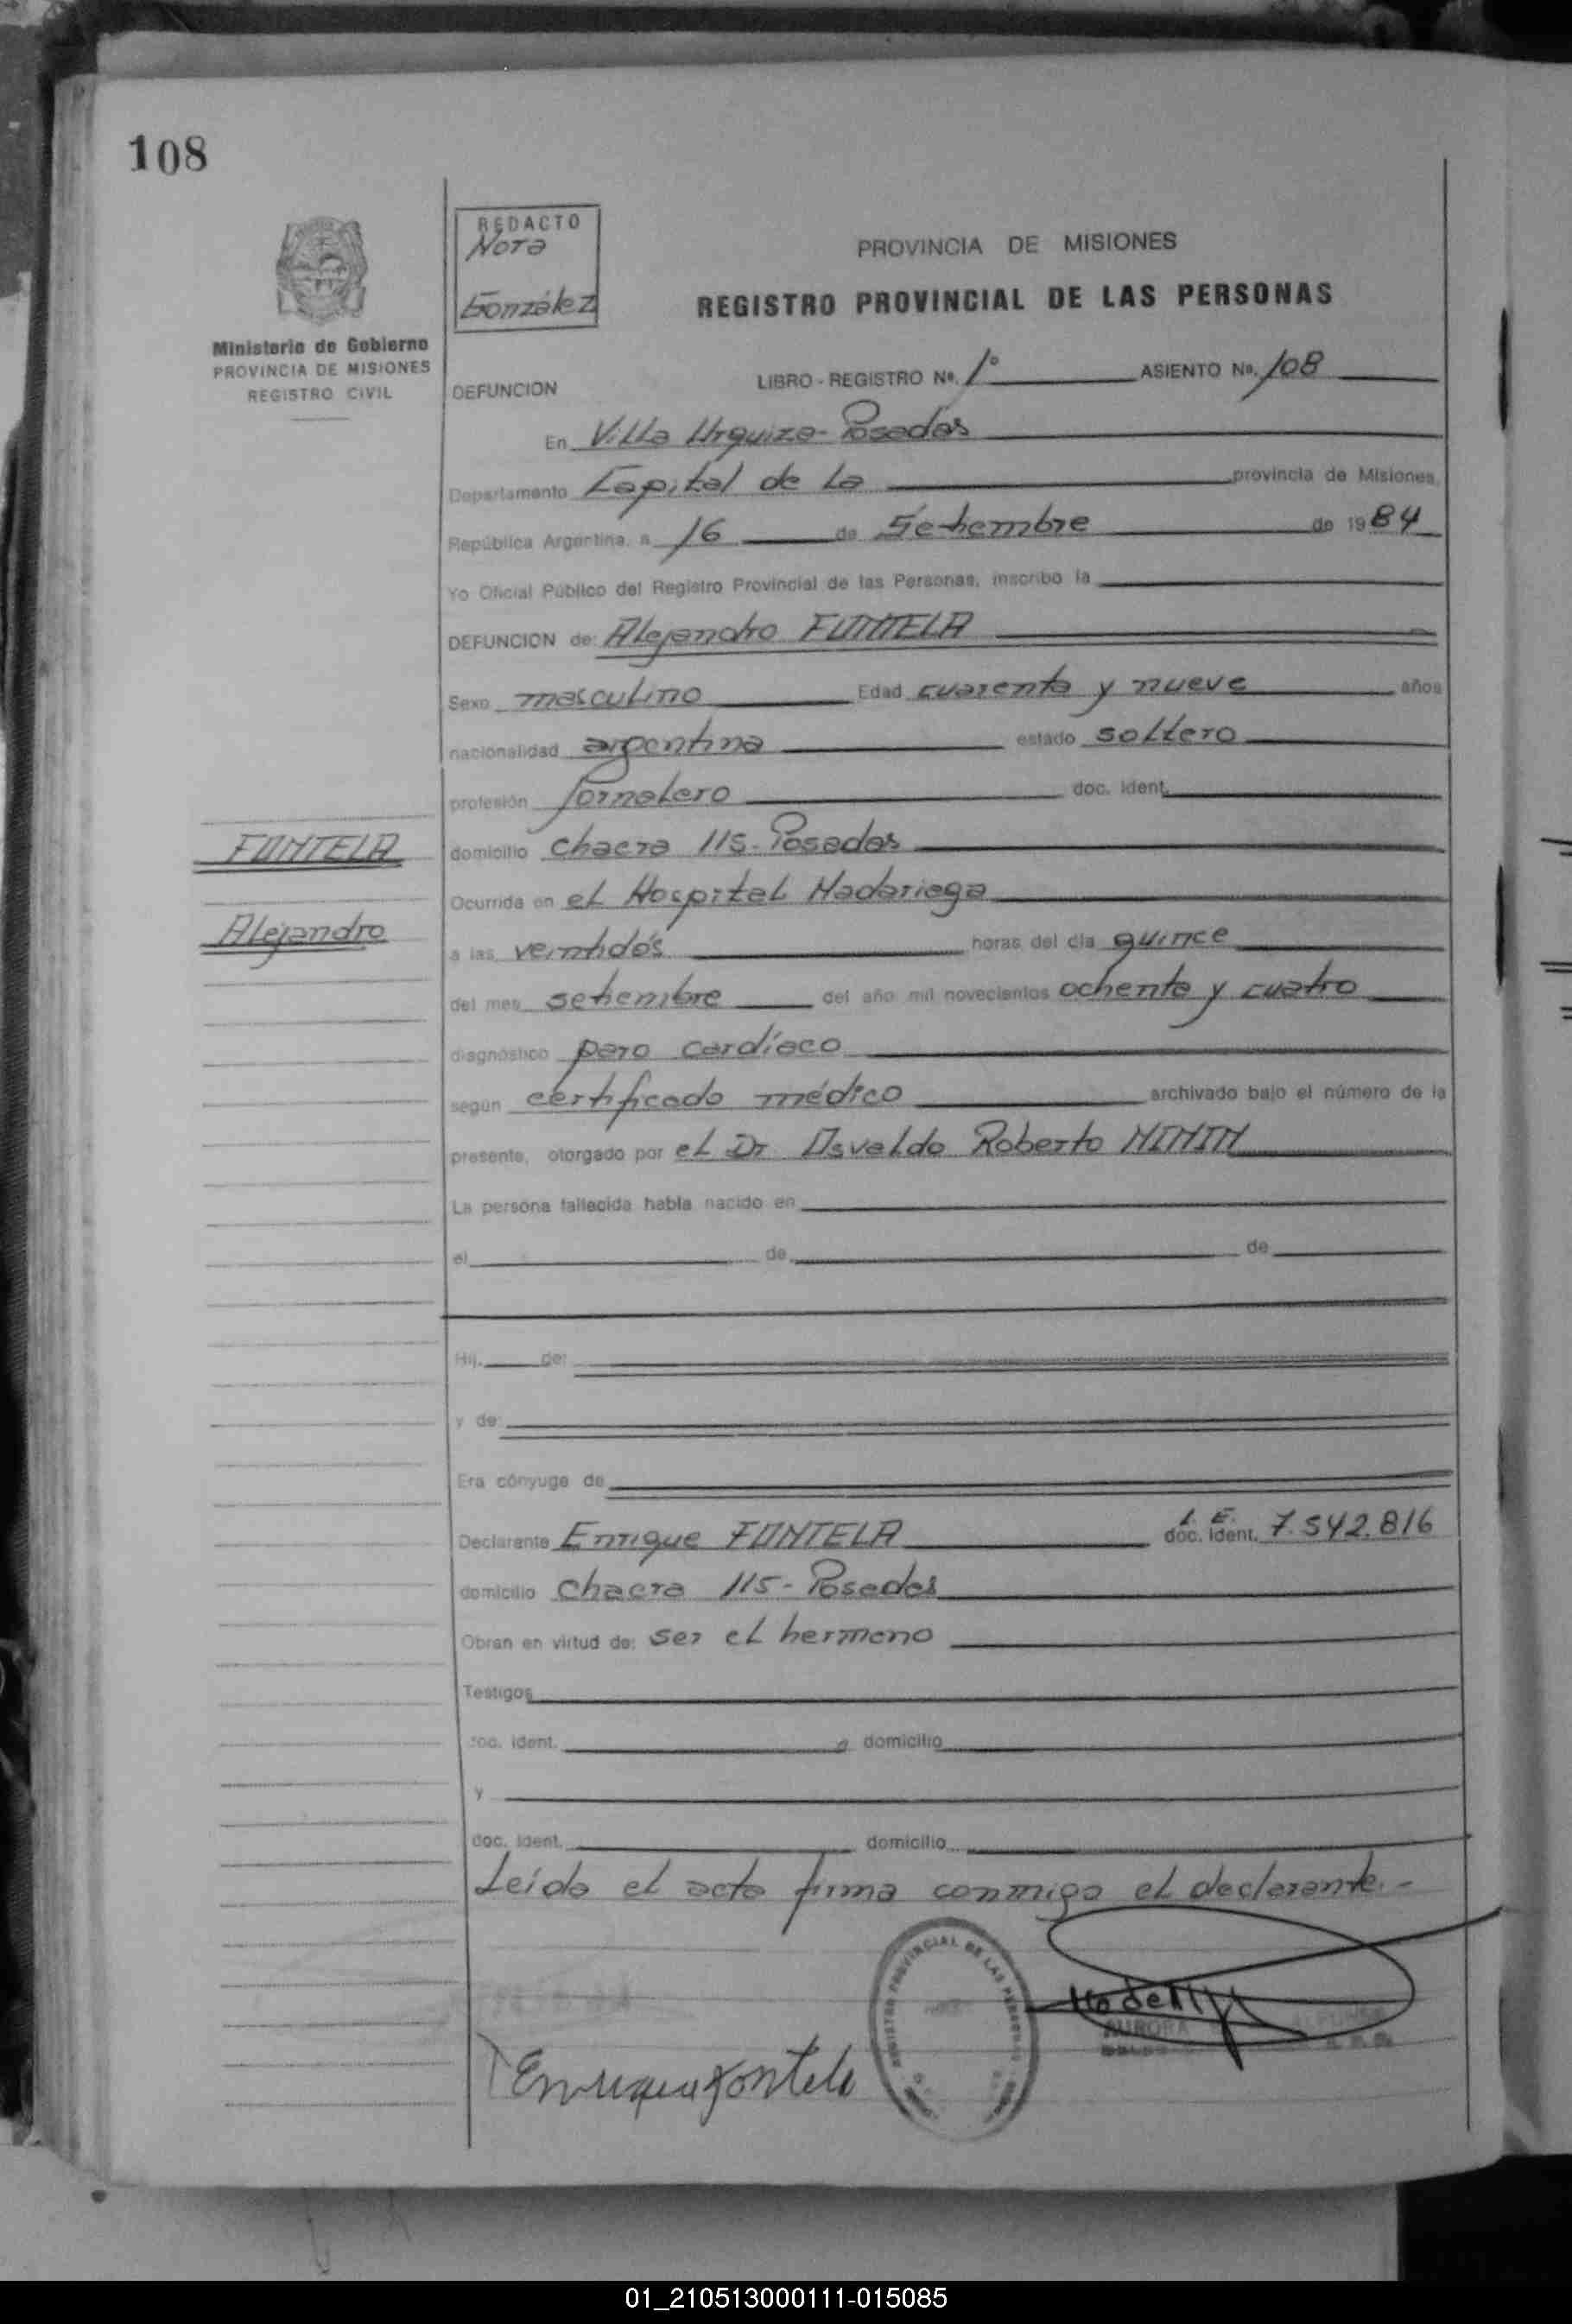 108
REDACTO
Nora
González
PROVINCIA DE MISIONES
REGISTRO PROVINCIAL DE LAS PERSONAS
Ministerio de Gobierno
PROVINCIA DE MISIONES
REGISTRO CIVIL
DEFUNCION LIBRO - REGISTRO Nº. 1º ASIENTO Nº. 108
En Villa Urquiza - Posadas
Departamento Capital de La provincia de Misiones,
República Argentina, a 16 de Setiembre de 1984
Yo Oficial Público del Registro Provincial de las Personas, inscribo la
DEFUNCION de: Alejandro FONTELA
Sexo masculino Edad cuarenta y nueve años
nacionalidad argentina estado soltero
profesión Jornalero doc. ident.
FONTELA
Alejandro
domicilio Chacra 115 - Posadas
Ocurrida en el Hospital Madariaga
a las veintidós horas del día quince
del mes setiembre del año mil novecientos ochenta y cuatro
diagnóstico paro cardíaco
según certificado médico archivado bajo el número de la
presente, otorgado por el Dr Osvaldo Roberto MININ
La persona fallecida había nacido en
el de de
Hij. de:
y de:
Era cónyuge de
Declarante Enrique FONTELA L. E. doc. ident. 7.542.816
domicilio Chacra 115 - Posadas
Obran en virtud de: ser el hermano
Testigos
doc. ident. domicilio
y
doc. ident. domicilio
Leída el acta firma conmigo el declarante.-
REGISTRO PROVINCIAL DE LAS PERSONAS
AURORA
Enrique Fontela
01_210513000111-015085